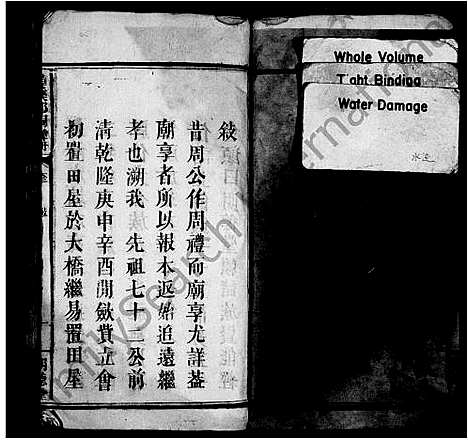 敍
昔周公作周禮而廟享尤詳蓋
廟享者所以報本返始追遠繼
孝也溯我先祖七十二公前
清乾隆庚申辛酉開斂貲立會
初置田屋於大橋繼易置田屋
Whole Volume
Tight Binding
Water Damage
水注
FamilySearch International